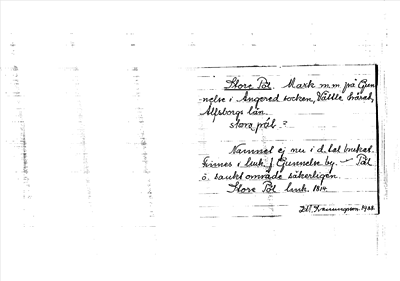 Store Pöl. Mark m.m. på Gun-
nelse i Angered socken, Vättle härad,
Älfsborgs län.
stora pöl ?
Namnet ej nu i d. bet brukat.
finnes i buk. f. Gunnelse by. — Pöl
o. sankt område säkerligen.
Store Pöl buk. 1814
1922